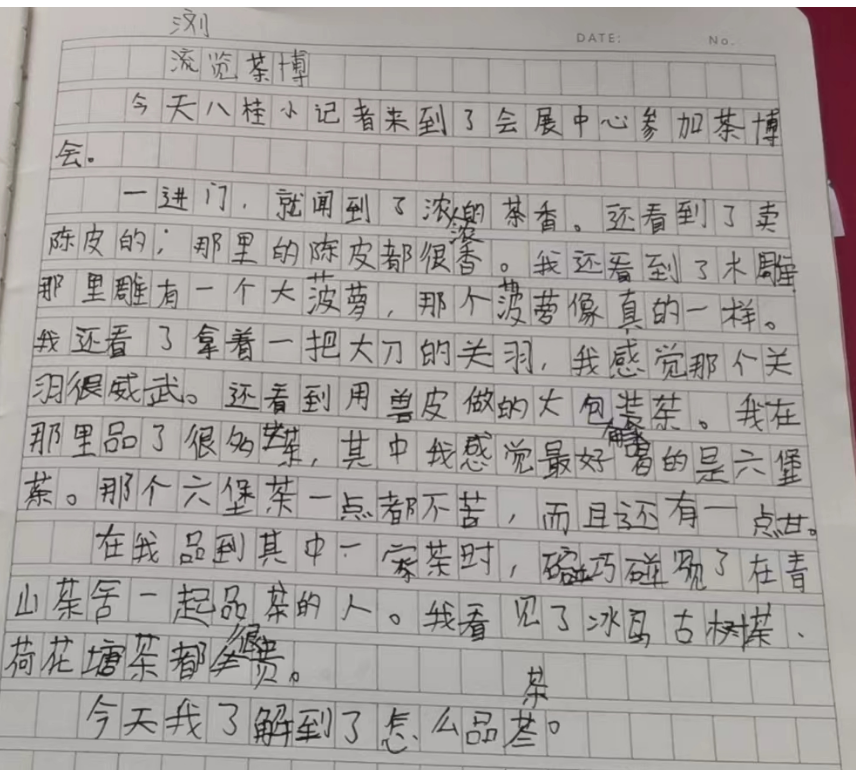 浏
DATE: No.
流览茶博
今天八桂小记者来到了会展中心参加茶博
会。
一进门,就闻到了浓浓的茶香。还看到了卖
陈皮的;那里的陈皮都很香。我还看到了木雕
那里雕有一个大菠萝,那个菠萝像真的一样。
我还看了拿着一把大刀的关羽,我感觉那个关
羽很威武。还看到用兽皮做的大包装茶。我在
那里品了很多茶,其中我感觉最好喝的是六堡
茶。那个六堡茶一点都不苦,而且还有一点甘。
在我品到其中一家茶时,碰巧碰见了在青
山茶舍一起品茶的人。我看见了冰岛古树茶、
荷花塘茶都很贵。
茶
今天我了解到了怎么品茶。